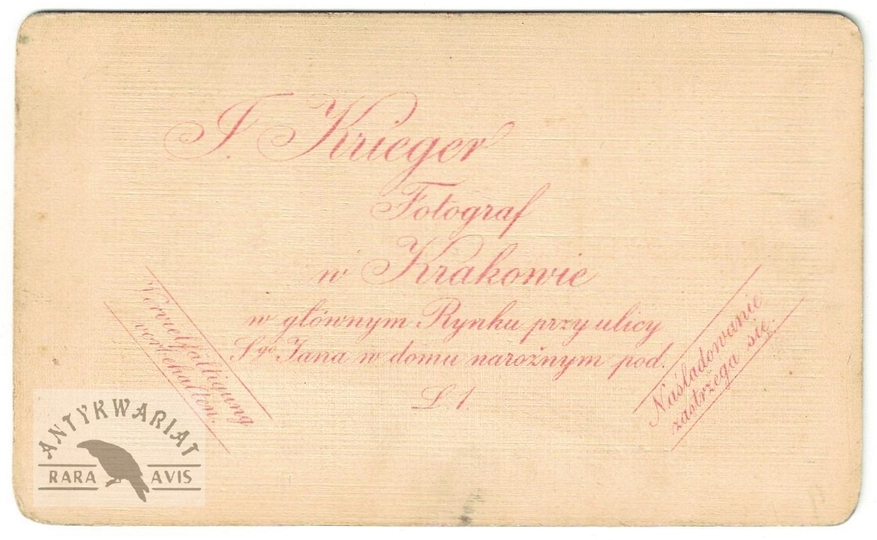 I. Krieger
Fotograf
w Krakowie
w głównym Rynku przy ulicy
Sgo Jana w domu narożnym pod.
L 1.
Vervielfältigung
vorbehalten.
Naśladowanie
zastrzega się.
ANTYKWARIAT
RARA AVIS